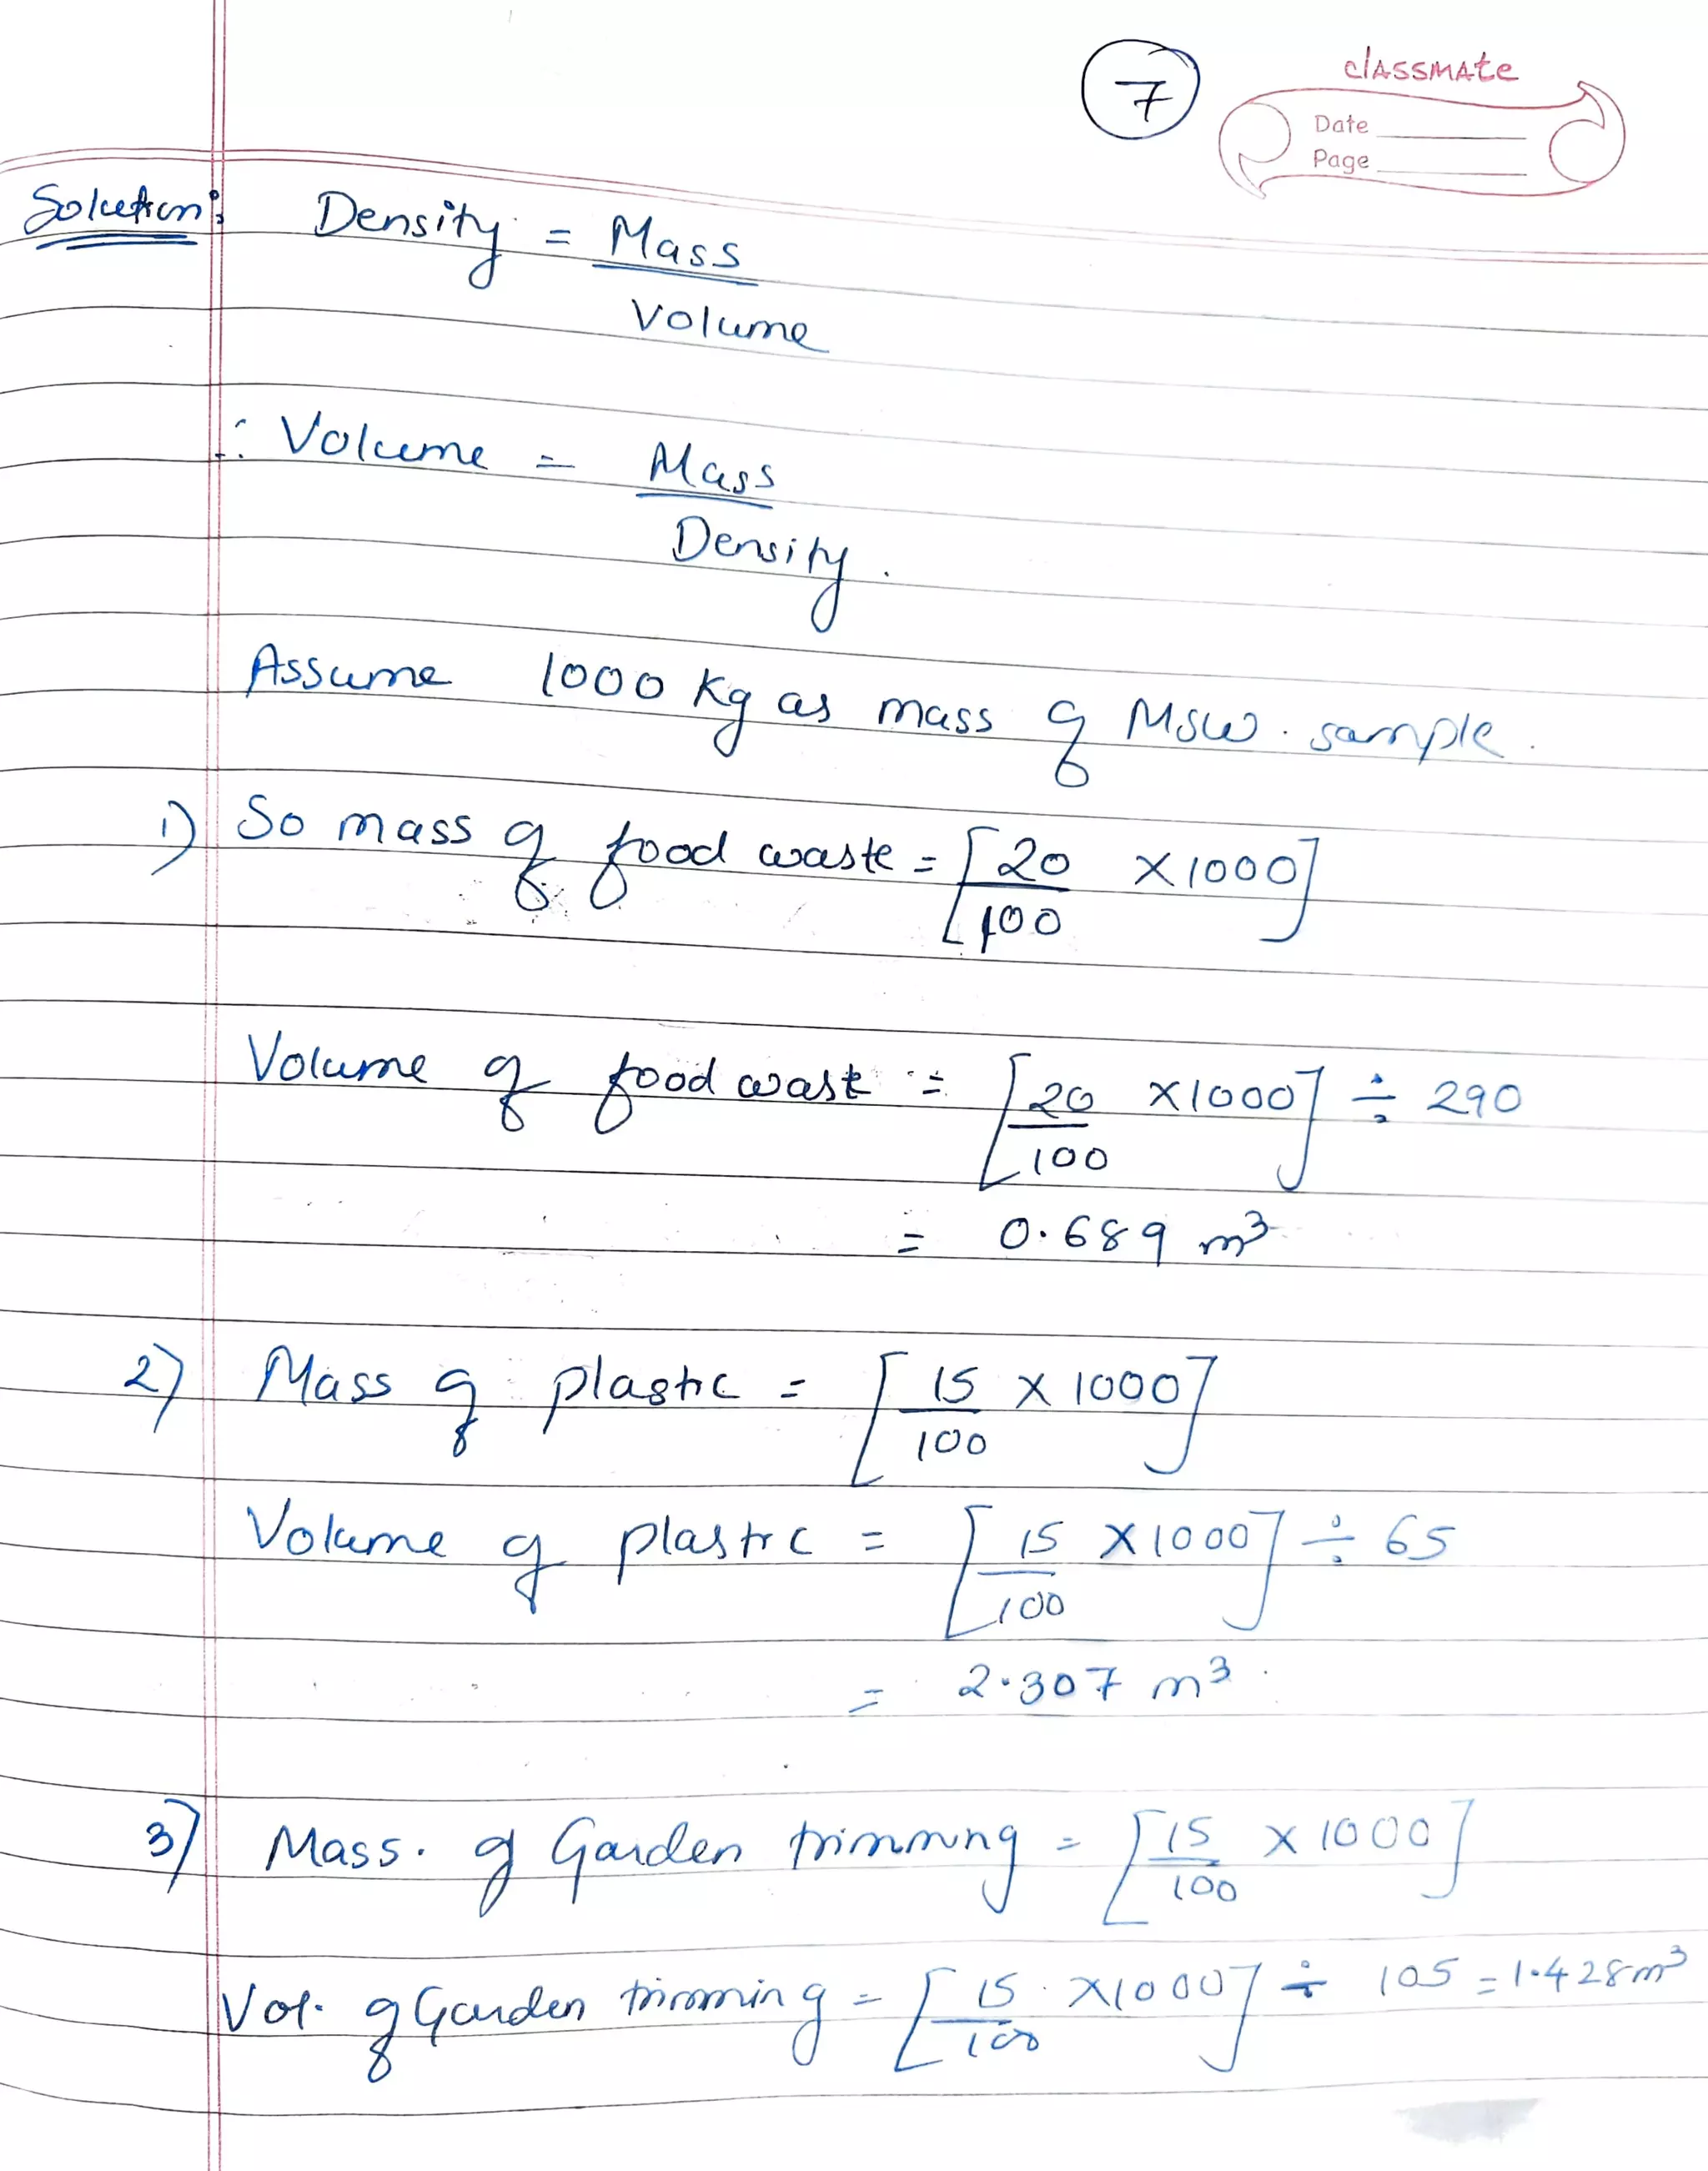 7
classmate
Date
Page
Solution: Density = Mass
Volume
∴ Volume = Mass
Density.
Assume 1000 Kg as mass of MSW. sample.
1) So mass of food waste = [20 × 1000]
100
Volume of food wast = [20 × 1000] ÷ 290
100
= 0.689 m³
2) Mass of plastic = [15 × 1000]
100
Volume of plastic = [15 × 1000] ÷ 65
100
= 2.307 m³.
3) Mass. of Garden trimming = [15 × 1000]
100
Vol. of Garden trimming = [15 × 1000] ÷ 105 = 1.428 m³
100